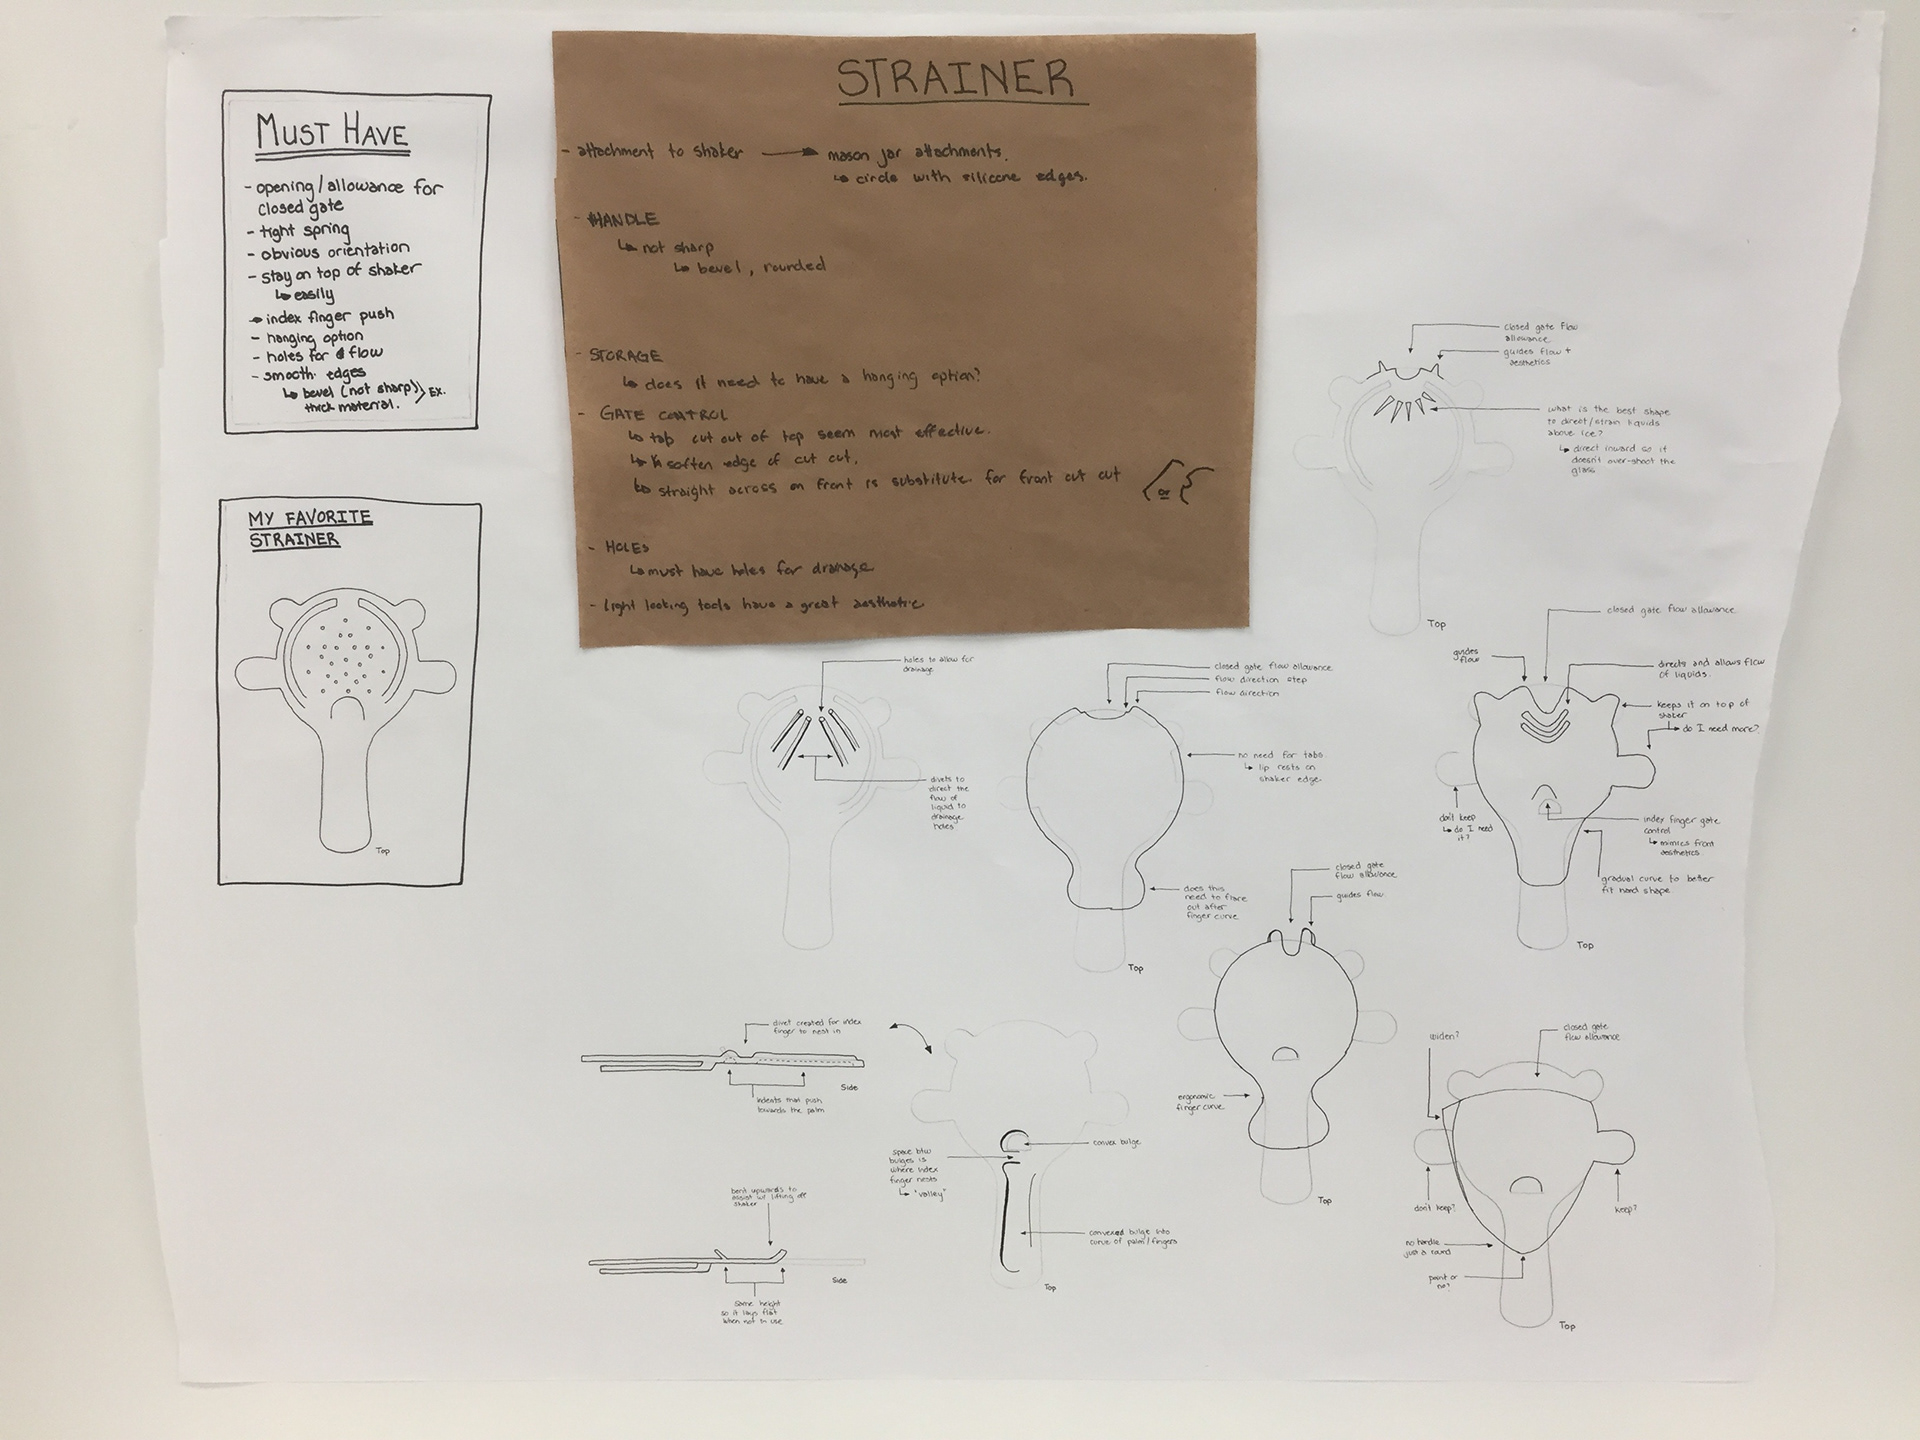 MUST HAVE
- opening/allowance for
closed gate
- tight spring
- obvious orientation
- stay on top of shaker
↳ easily
→ index finger push
- hanging option
- holes for flow
- smooth edges
↳ bevel (not sharp) > Ex.
thick material.
MY FAVORITE
STRAINER
Top
STRAINER
- attachment to shaker → mason jar attachments.
↳ circle with silicone edges.
- HANDLE
↳ not sharp
↳ bevel, rounded
- STORAGE
↳ does it need to have a hanging option?
- GATE CONTROL
↳ tab cut out of top seem most effective.
↳ soften edge of cut cut.
↳ straight across on front is substitute for front cut cut
or
- HOLES
↳ must have holes for drainage
- Light looking tools have a great aesthetic
closed gate flow
allowance
guides flow +
aesthetics
what is the best shape
to direct/strain liquids
above ice?
↳ direct inward so it
doesn't over-shoot the
glass
Top
holes to allow for
drainage
divets to
direct the
flow of
liquid to
drainage
holes
closed gate flow allowance
flow direction step
flow direction
no need for tabs.
↳ lip rests on
shaker edge.
does this
need to flare
out after
finger curve
Top
closed gate flow allowance
guides
flow
directs and allows flow
of liquids.
keeps it on top of
shaker
↳ do I need more?
don't keep
↳ do I need
it?
index finger gate
control
↳ mimics front
aesthetics
gradual curve to better
fit hand shape
Top
closed gate
flow allowance
guides flow
ergonomic
finger curve
Top
divet created for index
finger to nest in
Side
indents that push
towards the palm
bent upwards to
assist w/ lifting off
shaker
Side
Same height
so it lays flat
when not in use
convex bulge
space btw
bulges is
where index
finger nests
↳ "valley"
convexed bulge into
curve of palm/fingers
Top
widen?
closed gate
flow allowance
don't keep?
keep?
no handle
just a round
point or
no?
Top